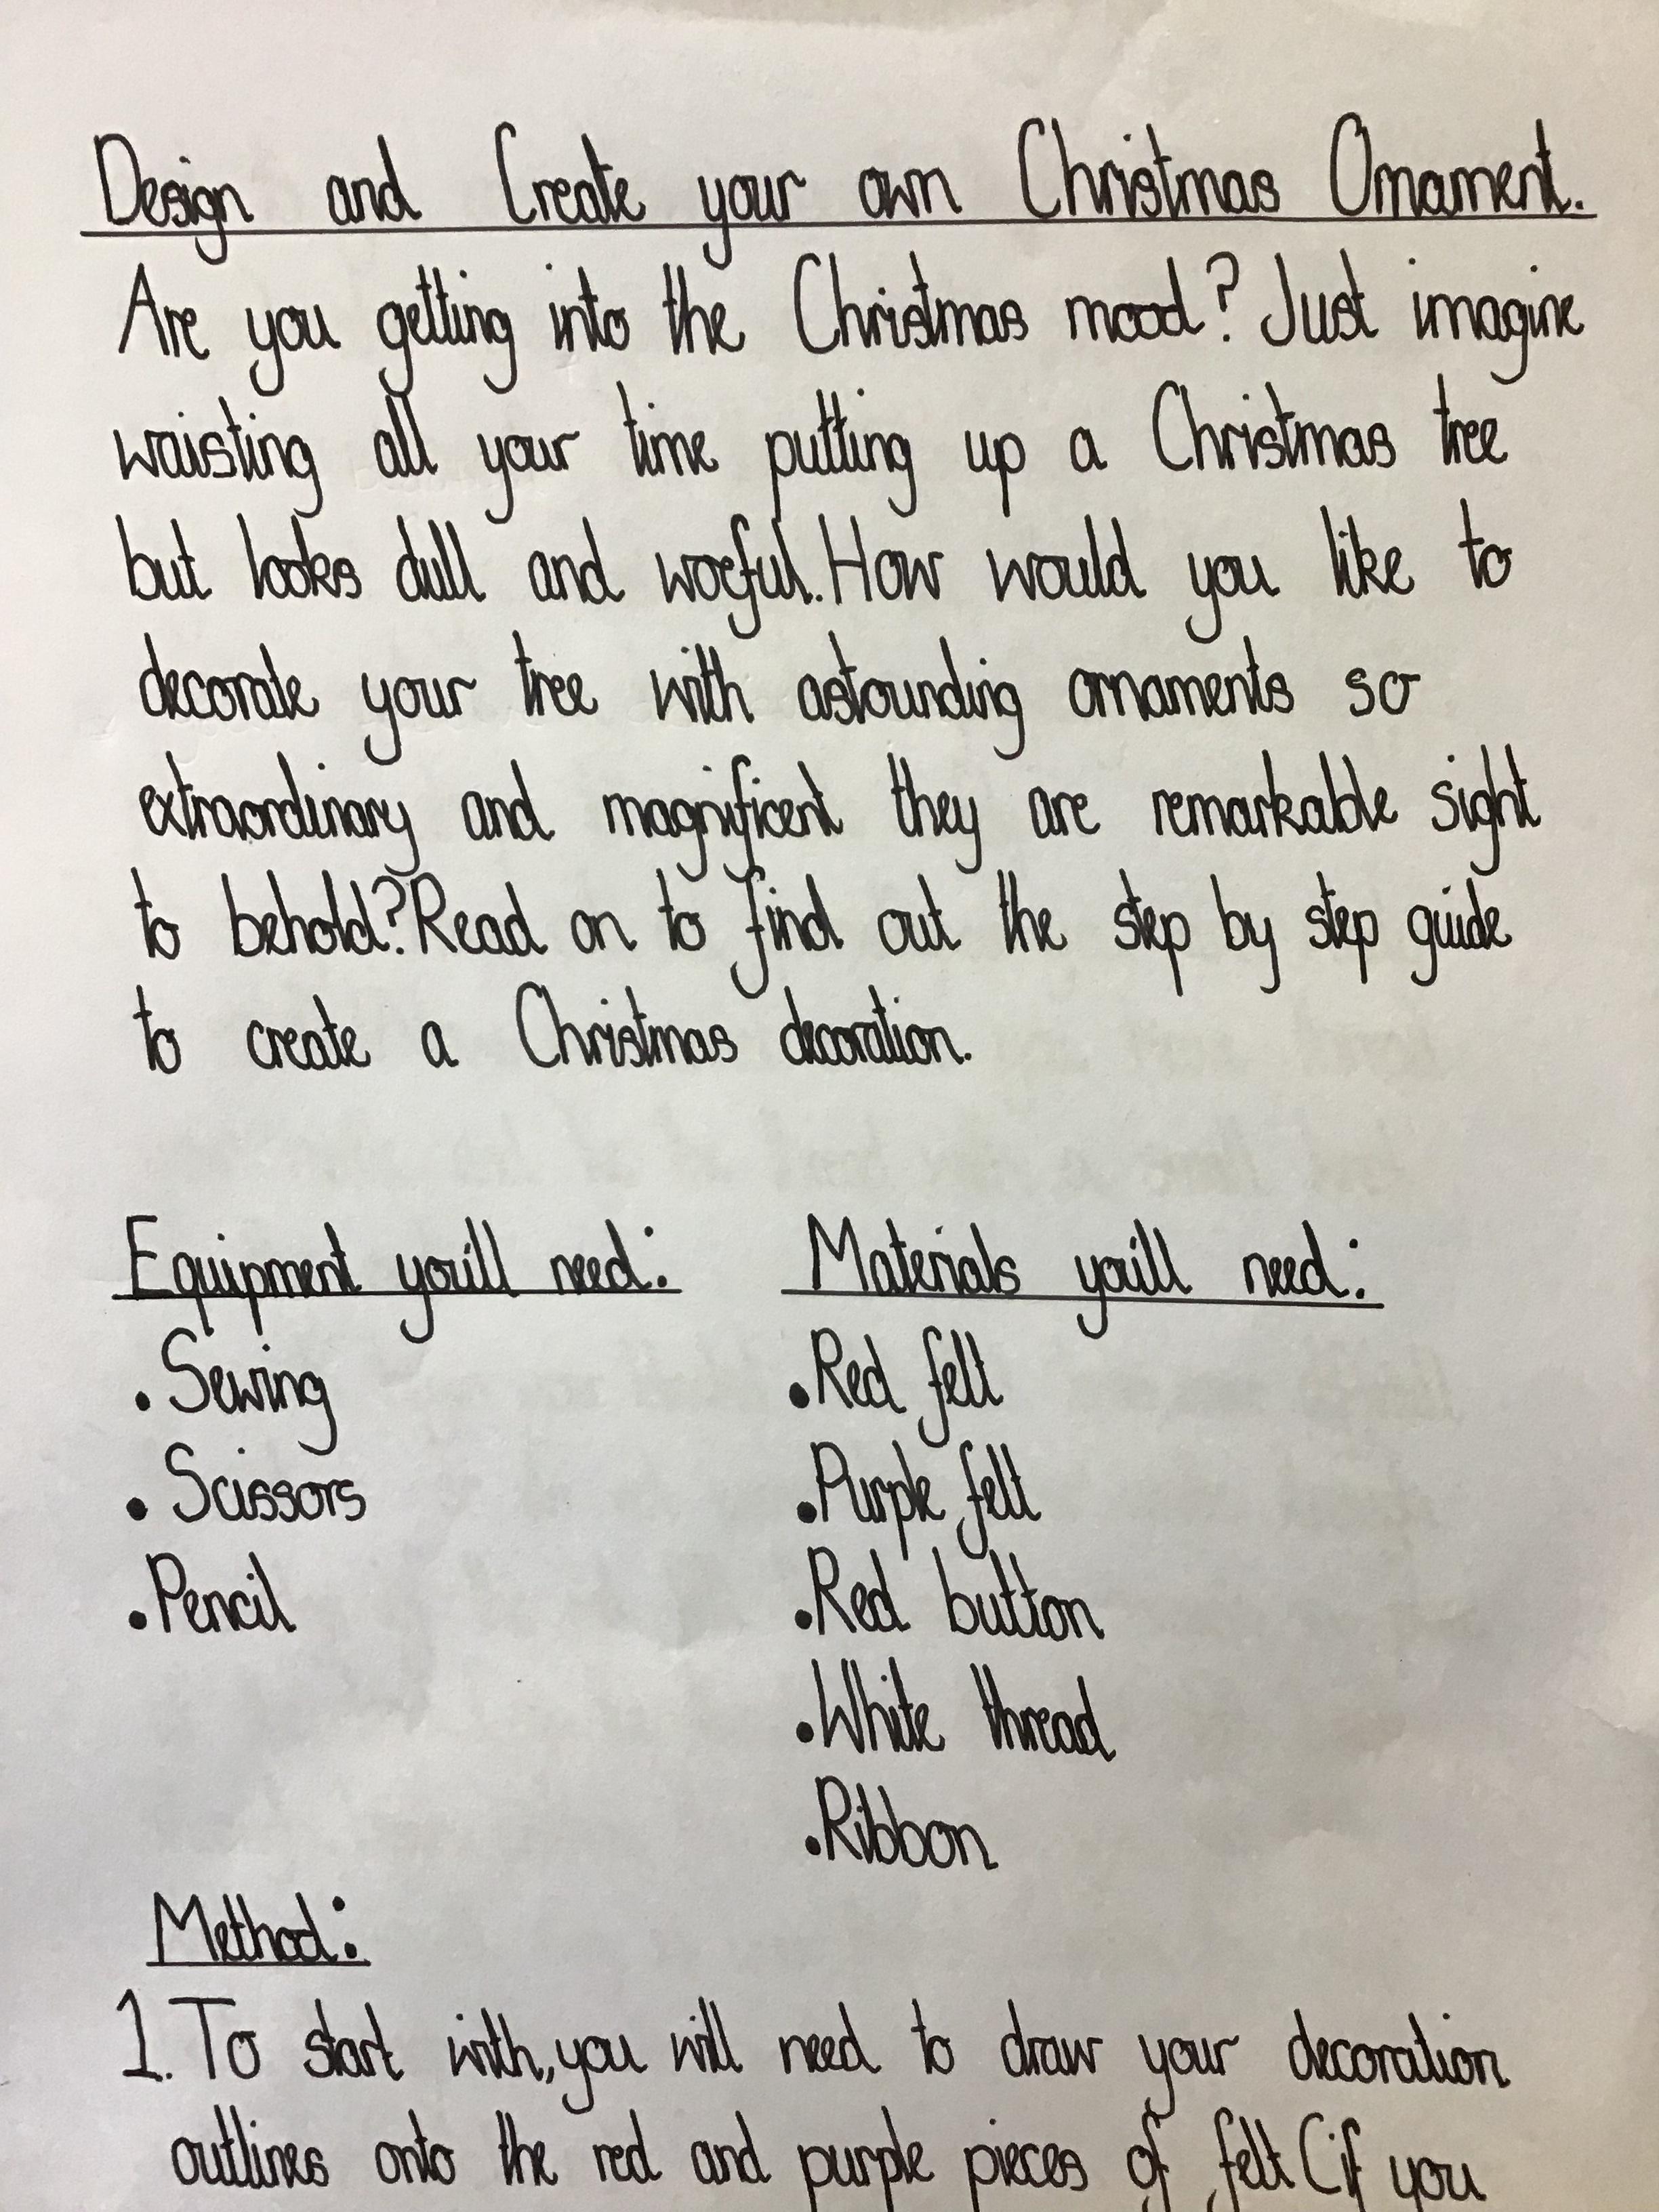 Design and Create your own Christmas Ornament.
Are you getting into the Christmas mood? Just imagine
waisting all your time putting up a Christmas tree
but looks dull and woeful. How would you like to
decorate your tree with astounding ornaments so
extraordinary and magnificent they are remarkable sight
to behold? Read on to find out the step by step guide
to create a Christmas decoration.
Equipment you'll need:
• Sewing
• Scissors
• Pencil
Materials you'll need:
• Red felt
• Purple felt
• Red button
• White thread
• Ribbon
Method:
1. To start with, you will need to draw your decoration
outlines onto the red and purple pieces of felt (if you